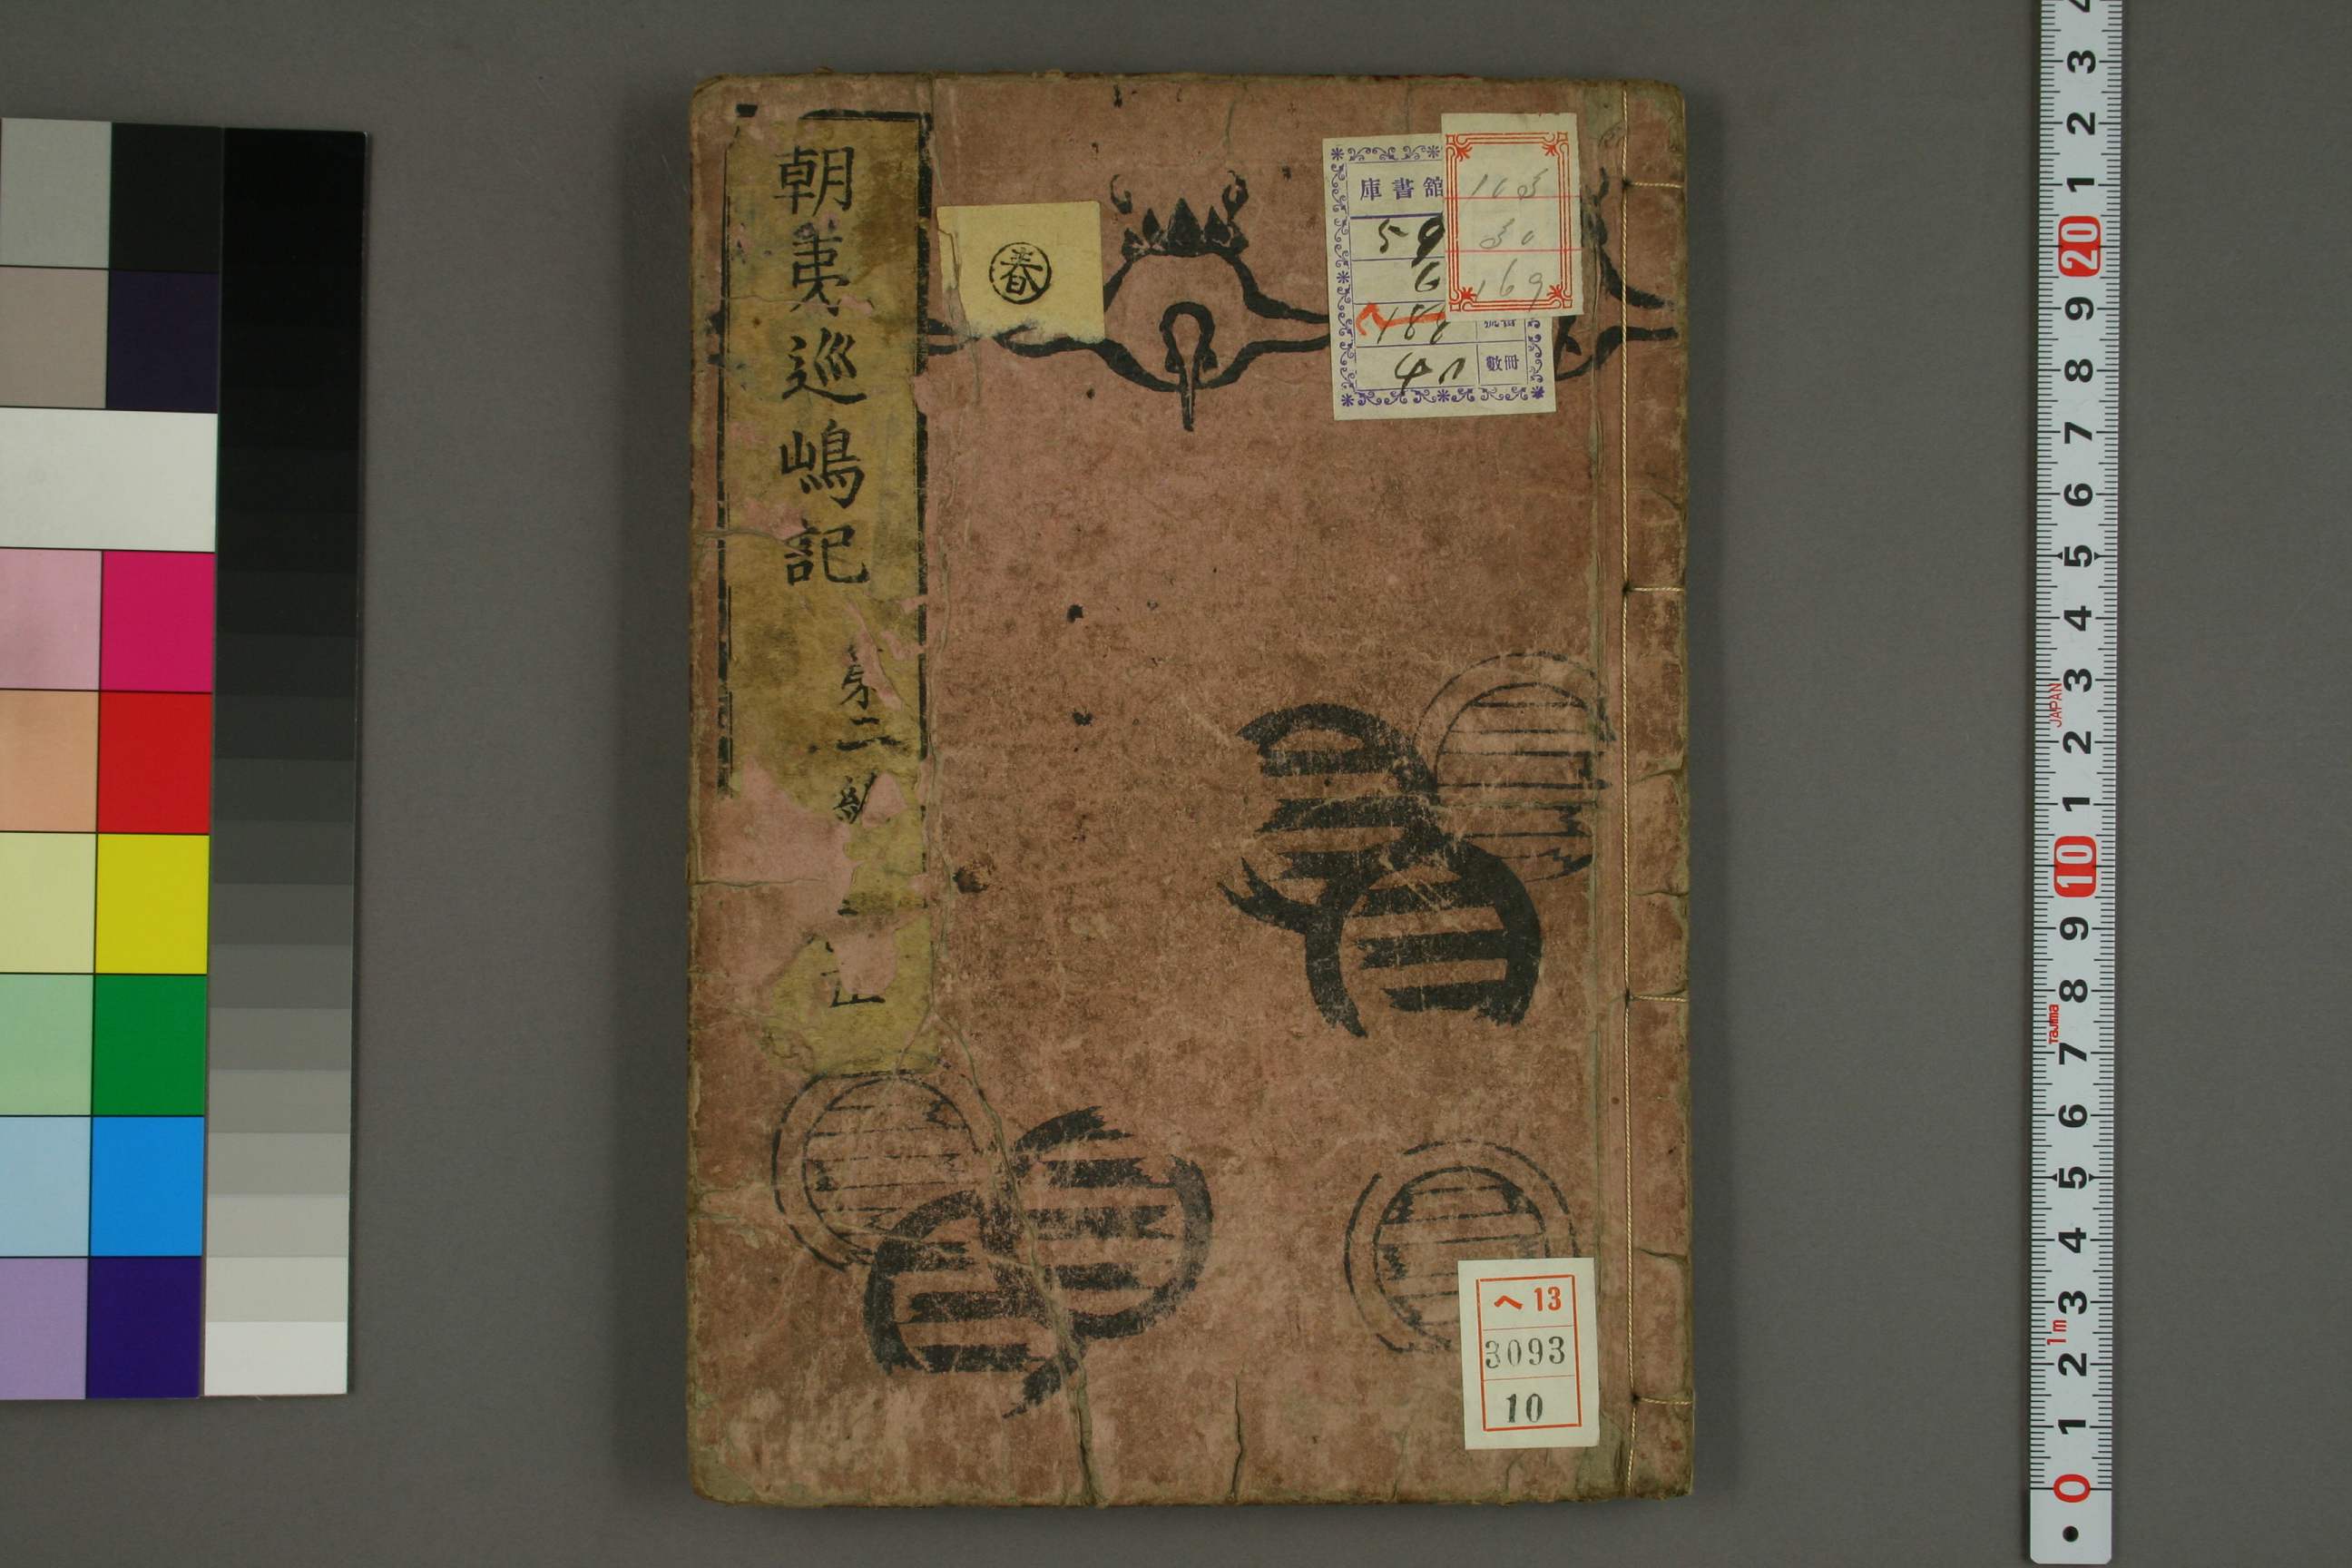 朝夷巡嶋記
第二編
春
庫書舘
59
6
188
号番
40
數冊
103
30
169
ヘ13
3093
10
JAPAN
Tajima
1m
4
3
2
1
20
9
8
7
6
5
4
3
2
1
10
9
8
7
6
5
4
3
2
1
0